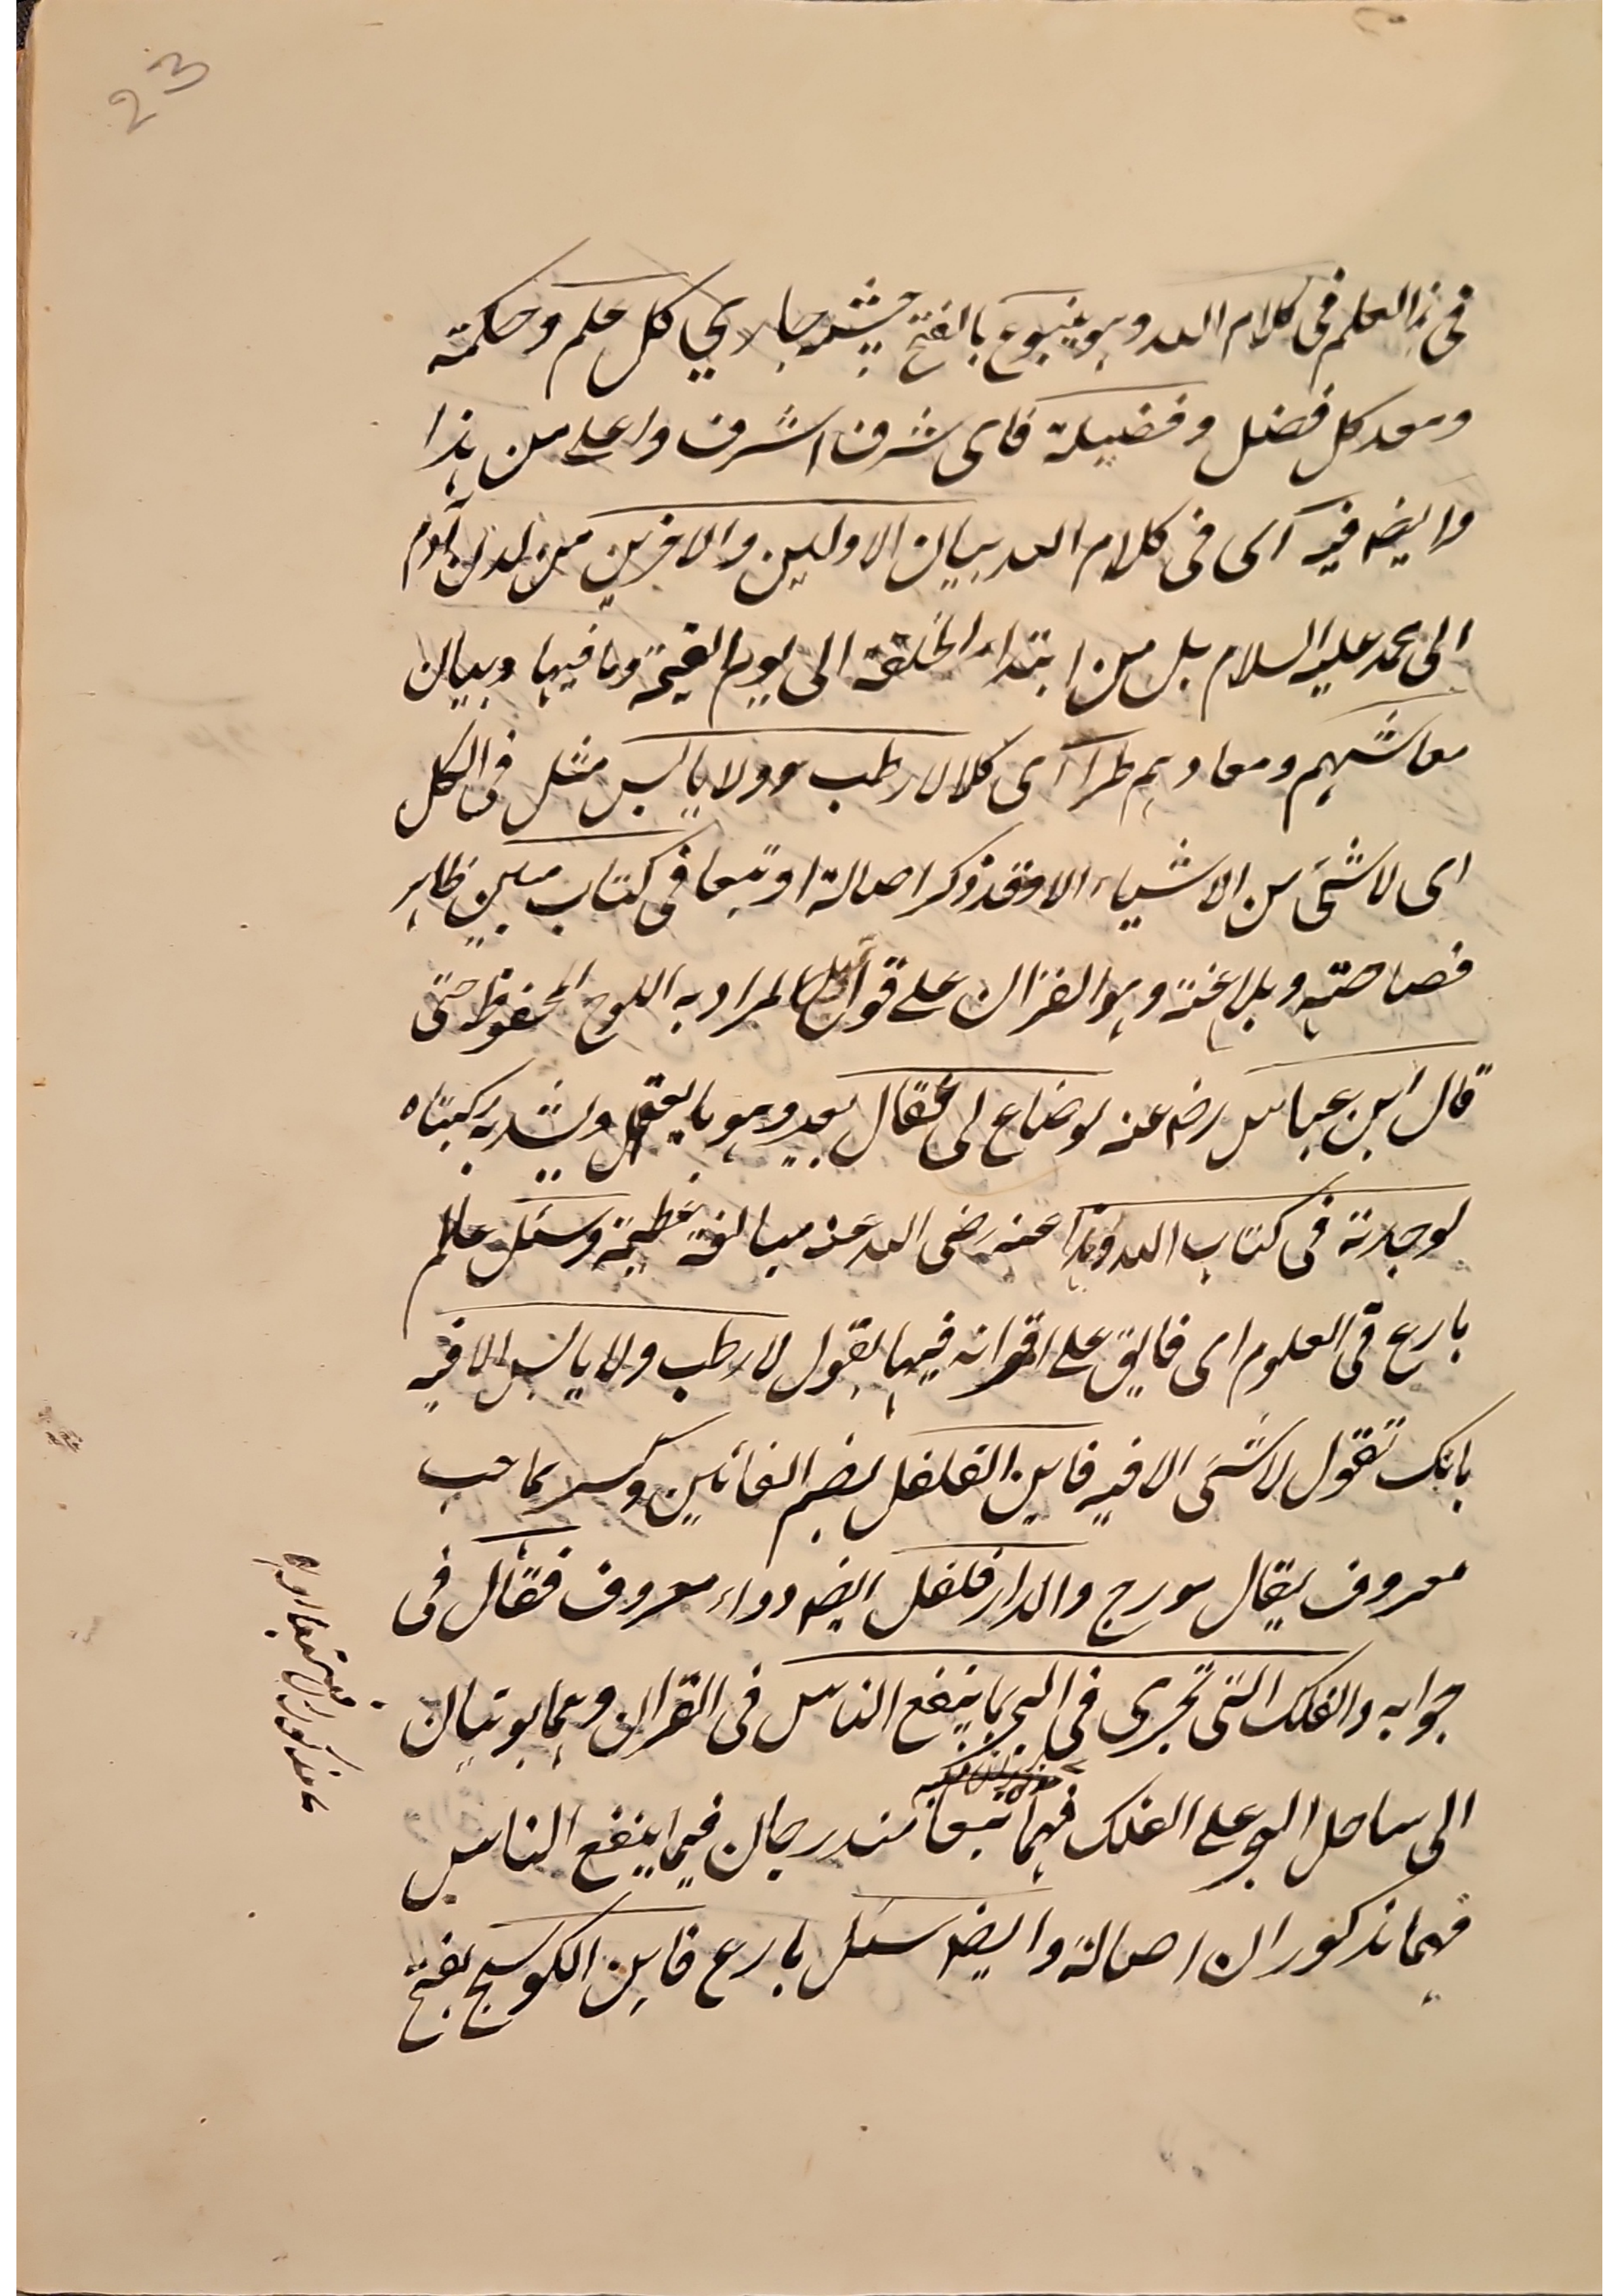 23
فى هذا العلم فى كلام الله وهو ينبوع بالفتح چشمه جارى كل علم وحكمته
ومعد كل فضل وفضيلة فاى شرف اشرف واعلى من هذا
وايضه فيه اى فى كلام الله بيان الاولين والاخرين من لدن آدم
الى محمد عليه السلام بل من ابتداء الخلقة الى يوم القيمة وما فيها وبيان
معاشهم ومعادهم طرا اى كلا لا رطب وولا يابس مثل فى الكل
اى لا شئ من الاشياء الا وقد ذكر اصالة او تبعا فى كتاب مبين ظاهر
فصاحته وبلاغته وهو القران على قول المراد به اللوح المحفوظ حتى
قال ابن عباس رضه عنه لو ضاع لى عقال بعير وهو ما يعتقل ويشد به ركبتاه
لوجدته فى كتاب الله وهذا عنه رضى الله عنه مبالغة عظيمة وسئل عالم
بارع فى العلوم اى فايق على اقرانه فيها بقول لا رطب ولا يابس الا فيه
بانك تقول لا شئ الا فيه فاين الفلفل بضم الفائين وكسرهما حب
معروف يقال مورج والدار فلفل ايضه دواء معروف فقال فى
جوابه والفلك التى تجرى فى البحر بما ينفع الناس فى القران وهما يوتيان
الى ساحل البحر على الفلك فهما تبعا مندرجان فيما ينفع الناس
فهما مذكوران اصالة وايضه سئل بارع فاين الكوسج بفتح